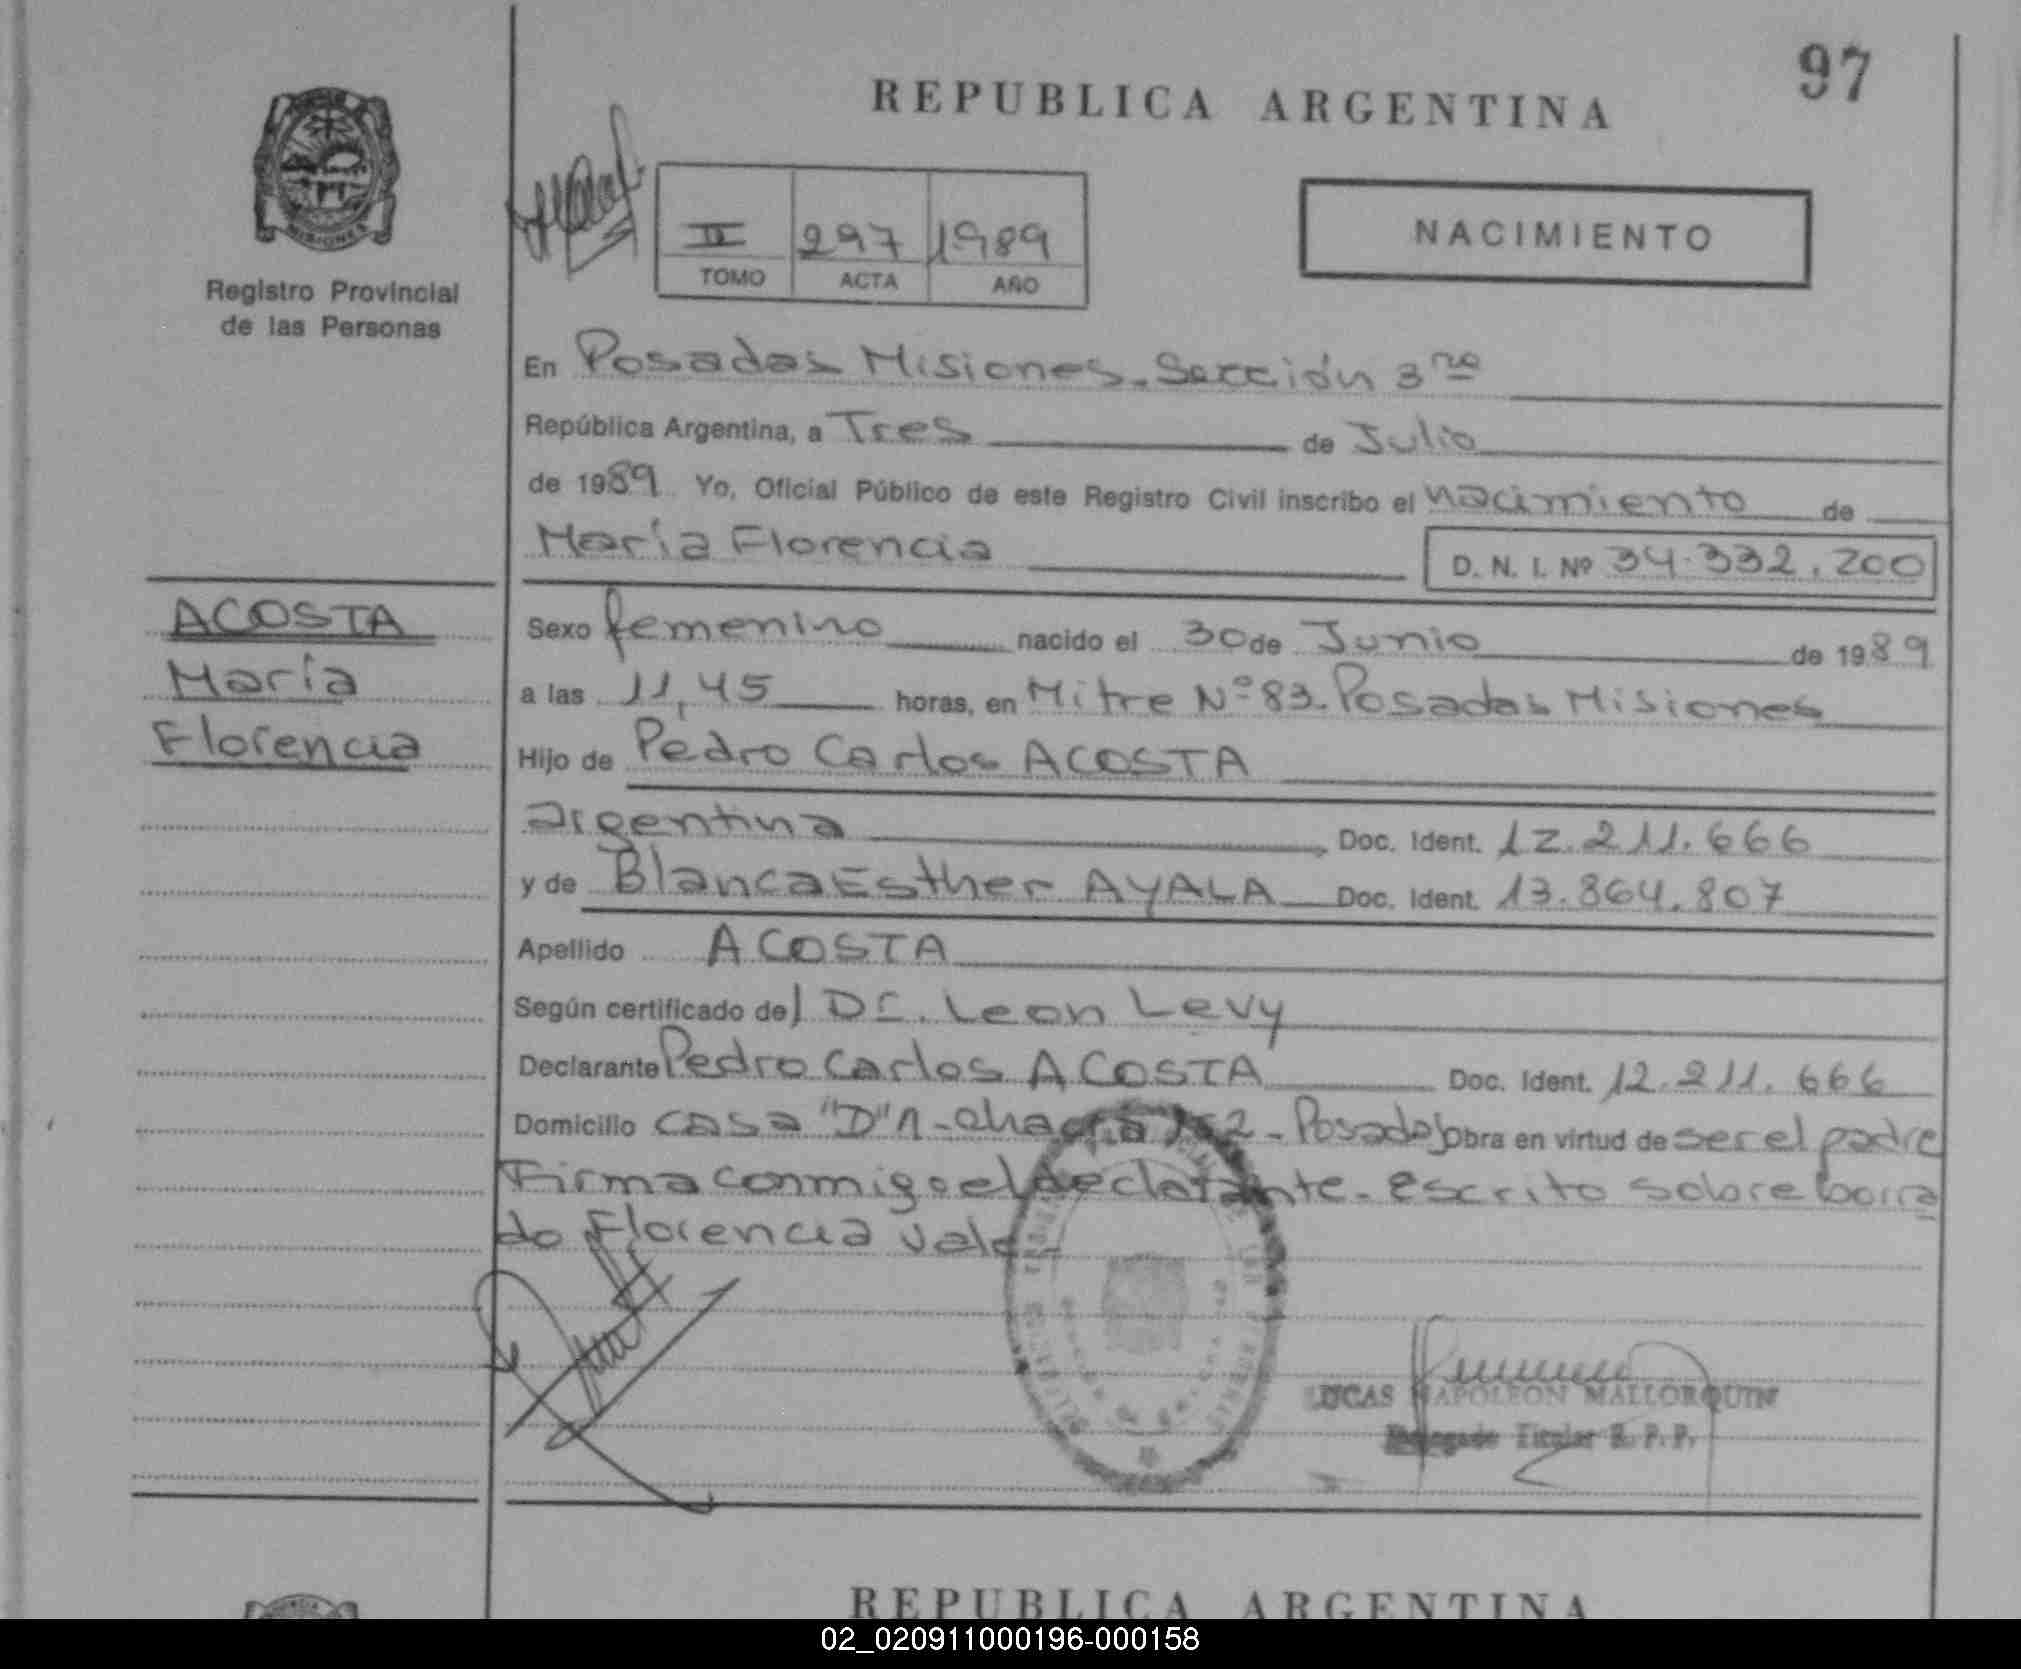 97
REPUBLICA ARGENTINA
MISIONES
Registro Provincial
de las Personas
II 297 1989
TOMO ACTA AÑO
NACIMIENTO
En Posadas Misiones. Sección 3ra
República Argentina, a Tres de Julio
de 1989 Yo, Oficial Público de este Registro Civil inscribo el nacimiento de
María Florencia D. N. I. Nº 34.332.200
ACOSTA
María
Florencia
Sexo femenino nacido el 30 de Junio de 1989
a las 11,45 horas, en Mitre Nº 83. Posadas Misiones
Hijo de Pedro Carlos ACOSTA
argentina Doc. Ident. 12.211.666
y de Blanca Esther AYALA Doc. Ident. 13.864.807
Apellido ACOSTA
Según certificado del Dr. Leon Levy
Declarante Pedro Carlos ACOSTA Doc. Ident. 12.211.666
Domicilio casa "D" 1 - chacra 2 - Posadas obra en virtud de ser el padre
Firma conmigo el declarante. escrito sobre borra
do Florencia vale -
LUCAS NAPOLEON MALLORQUIN
Delegado Titular R. P. P.
REPUBLICA ARGENTINA
02_020911000196-000158